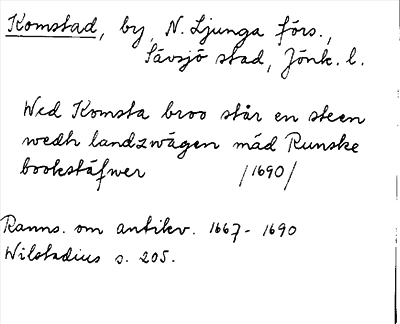 Komstad, by, N. Ljunga förs.,
Sävsjö stad, Jönk. l.
Wed Komsta broo står en steen
wedh landzwägen mäd Runske
bookstäfwer /1690/
Ranns. om antikv. 1667-1690
Wilstadius s. 205.